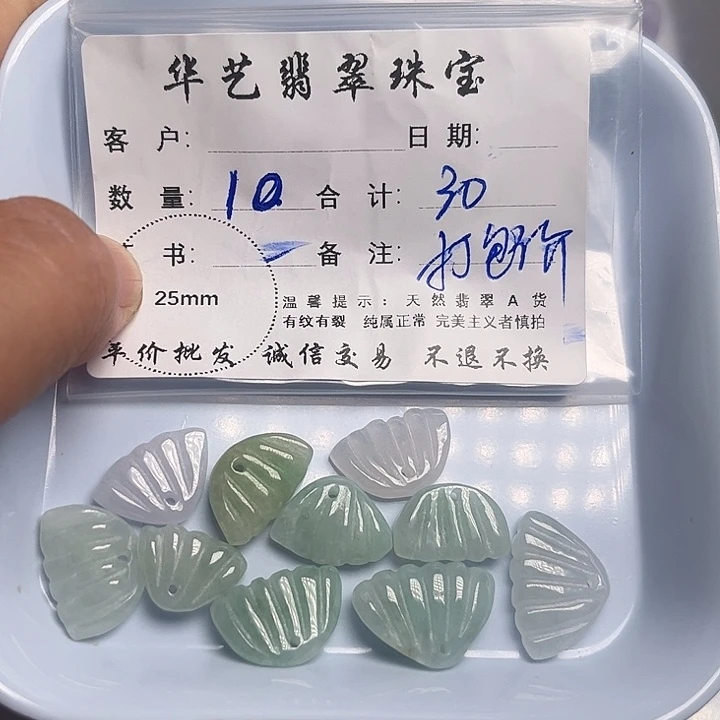 华艺翡翠珠宝
客 户: 日 期:
数 量: 10 合 计: 30
书: 备 注: 打包价
25mm
温馨提示: 天然翡翠A货
有纹有裂 纯属正常 完美主义者慎拍
平价批发 诚信交易 不退不换